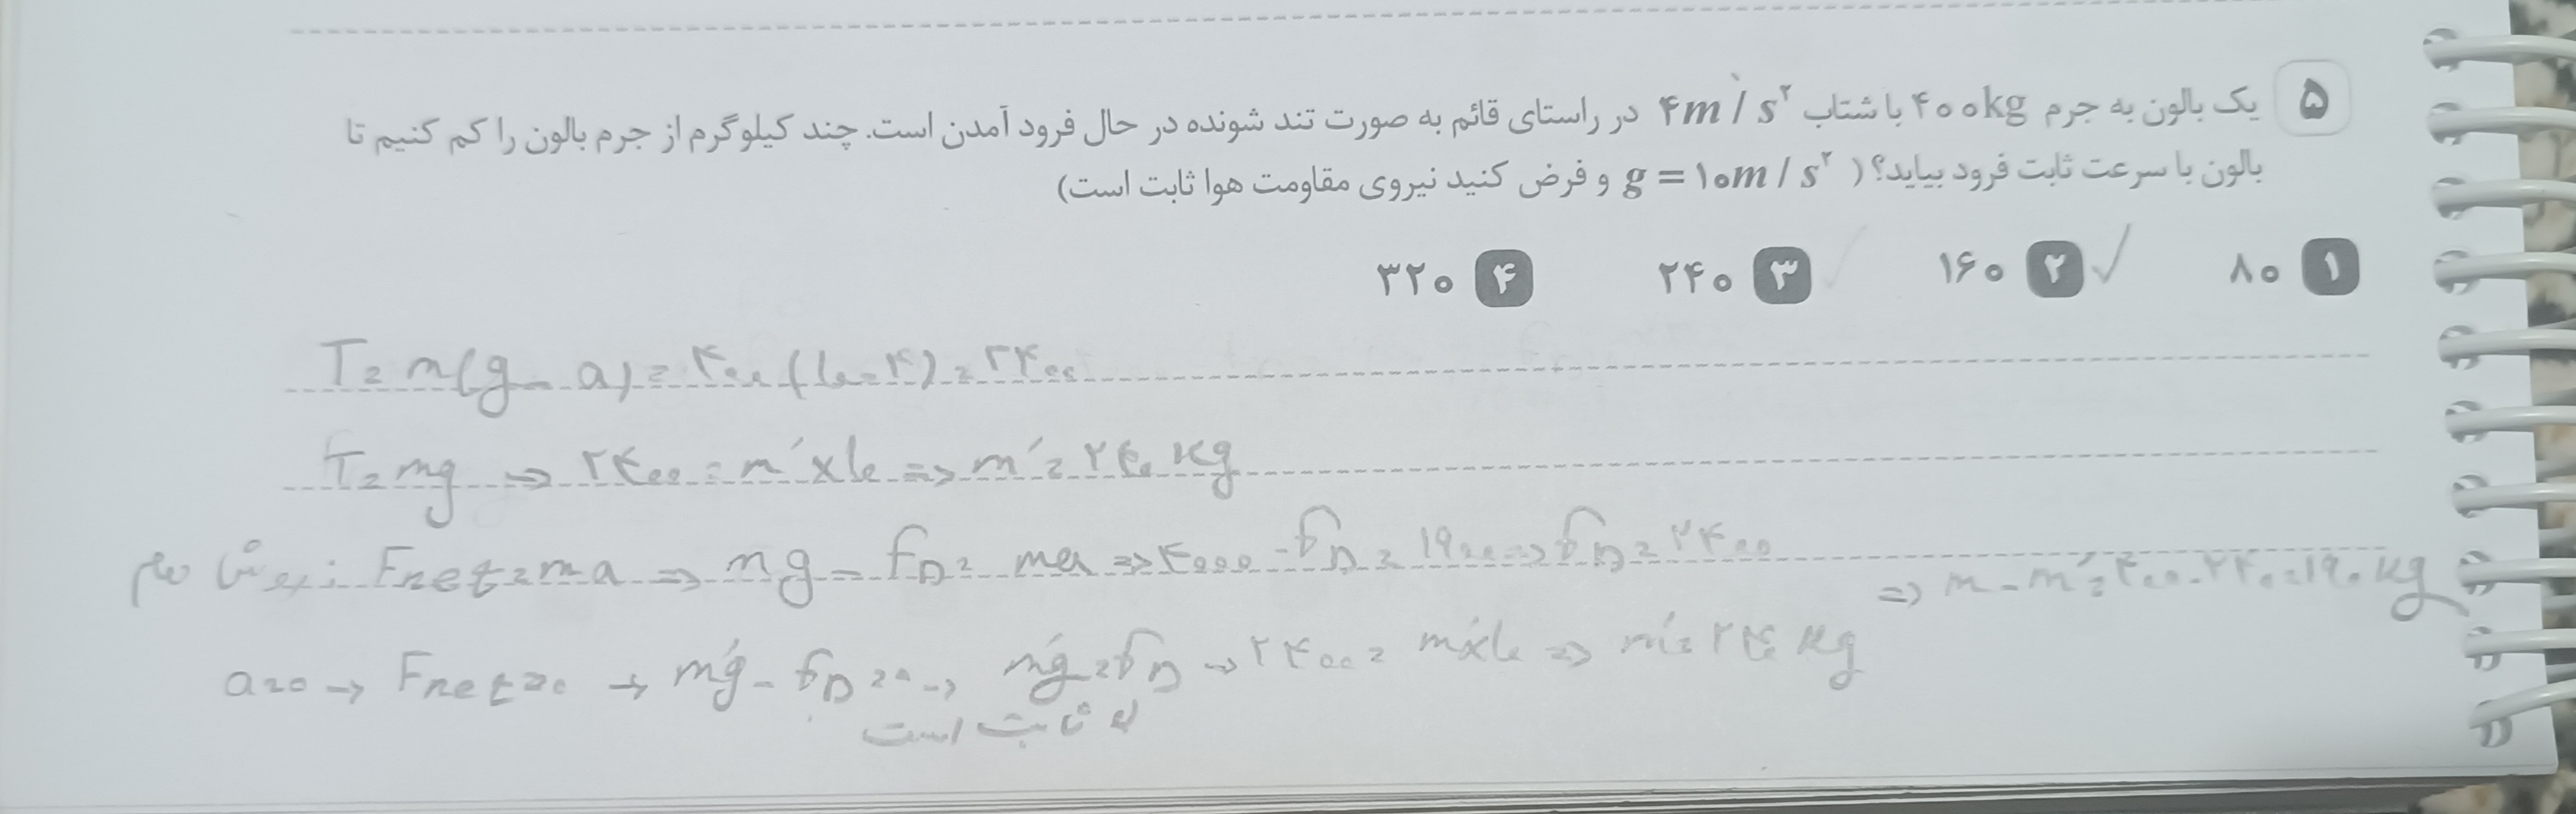 ۵ یک بالون به جرم ۴۰۰kg با شتاب ۴m/s² در راستای قائم به صورت تند شونده در حال فرود آمدن است. چند کیلوگرم از جرم بالون را کم کنیم تا
بالون با سرعت ثابت فرود بیاید؟ (g=۱۰m/s² و فرض کنید نیروی مقاومت هوا ثابت است)
۱ ۸۰ ۲ ۱۶۰ ✓ ۳ ۲۴۰ ۴ ۳۲۰
T = m(g - a) = ۴۰۰(۱۰-۴) = ۲۴۰۰
T = mg ⇒ ۲۴۰۰ = m' × ۱۰ ⇒ m' = ۲۴۰ kg
: Fnet = ma ⇒ mg - fD = ma ⇒ ۴۰۰۰ - fD = ۱۶۰۰ ⇒ fD = ۲۴۰۰
⇒ m - m' = ۴۰۰ - ۲۴۰ = ۱۶۰ kg
a = 0 → Fnet = 0 → m'g - fD = 0 → m'g = fD → ۲۴۰۰ = m' × ۱۰ ⇒ m' = ۲۴۰ kg
ثابت است